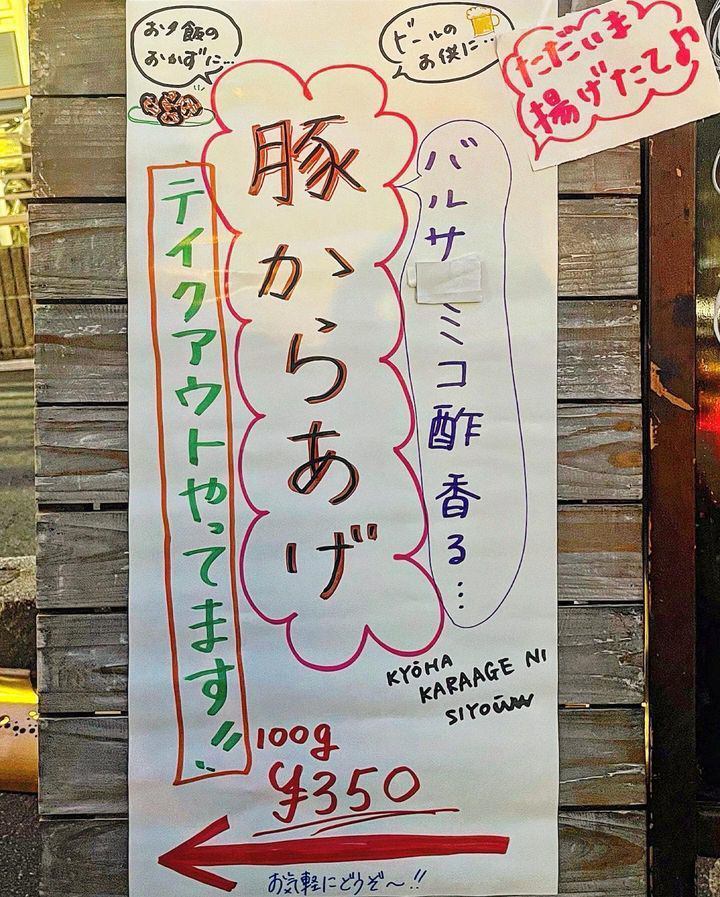 お夕飯の
おかずに…
ビールの
お供に…
ただいま
揚げたて♪
バルサミコ酢香る…
豚からあげ
テイクアウトやってます!!
KYŌHA
KARAAGE NI
SIYOū
100g
¥350
お気軽にどうぞ〜!!